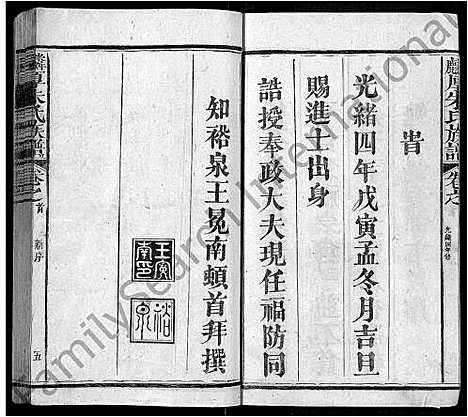 氏族譜
卷之
光緒四年修
旹
光緒四年戊寅孟冬月吉旦
賜進士出身
誥授奉政大夫現任福防同
知裕泉王冕南頓首拜撰
王冕南印
裕泉
朱氏族譜
卷之首
新序
五
FamilySearch International